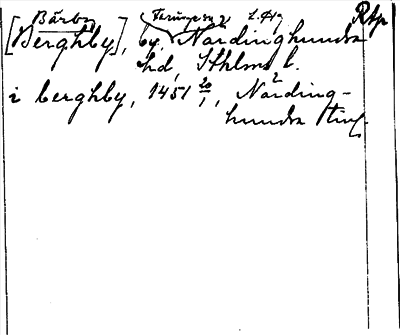 Bärby Rtp
[Berghby], by, Närdinghundra
hd, Sthlms l.
i berghby, 1451 20/1, Närding-
hundra tinl